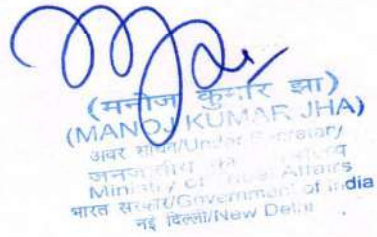 (मनोज कुमार झा)
(MANOJ KUMAR JHA)
अवर सचिव/Under Secretary
जनजातीय
Ministry of Affairs
भारत सरकार/Government of India
नई दिल्ली/New Delhi